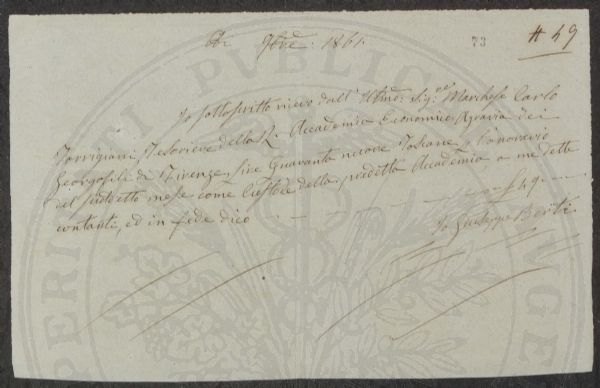 9bre: 1861.
73
# 49
Io sottoscritto ricevo dall' Illmo: Sigre Marchese Carlo
Torrigiani, Tesoriere della R. Accademia Economico Agraria dei
Georgofili di Firenze, Lire Quaranta nuove Toscane, l'onorario
del suddetto mese come Custode della predetta Accademia a me dette
contanti, ed in fede dico - - - - - £ 49. -
Io Giuseppe Berti
PERITATI PUBLICAE